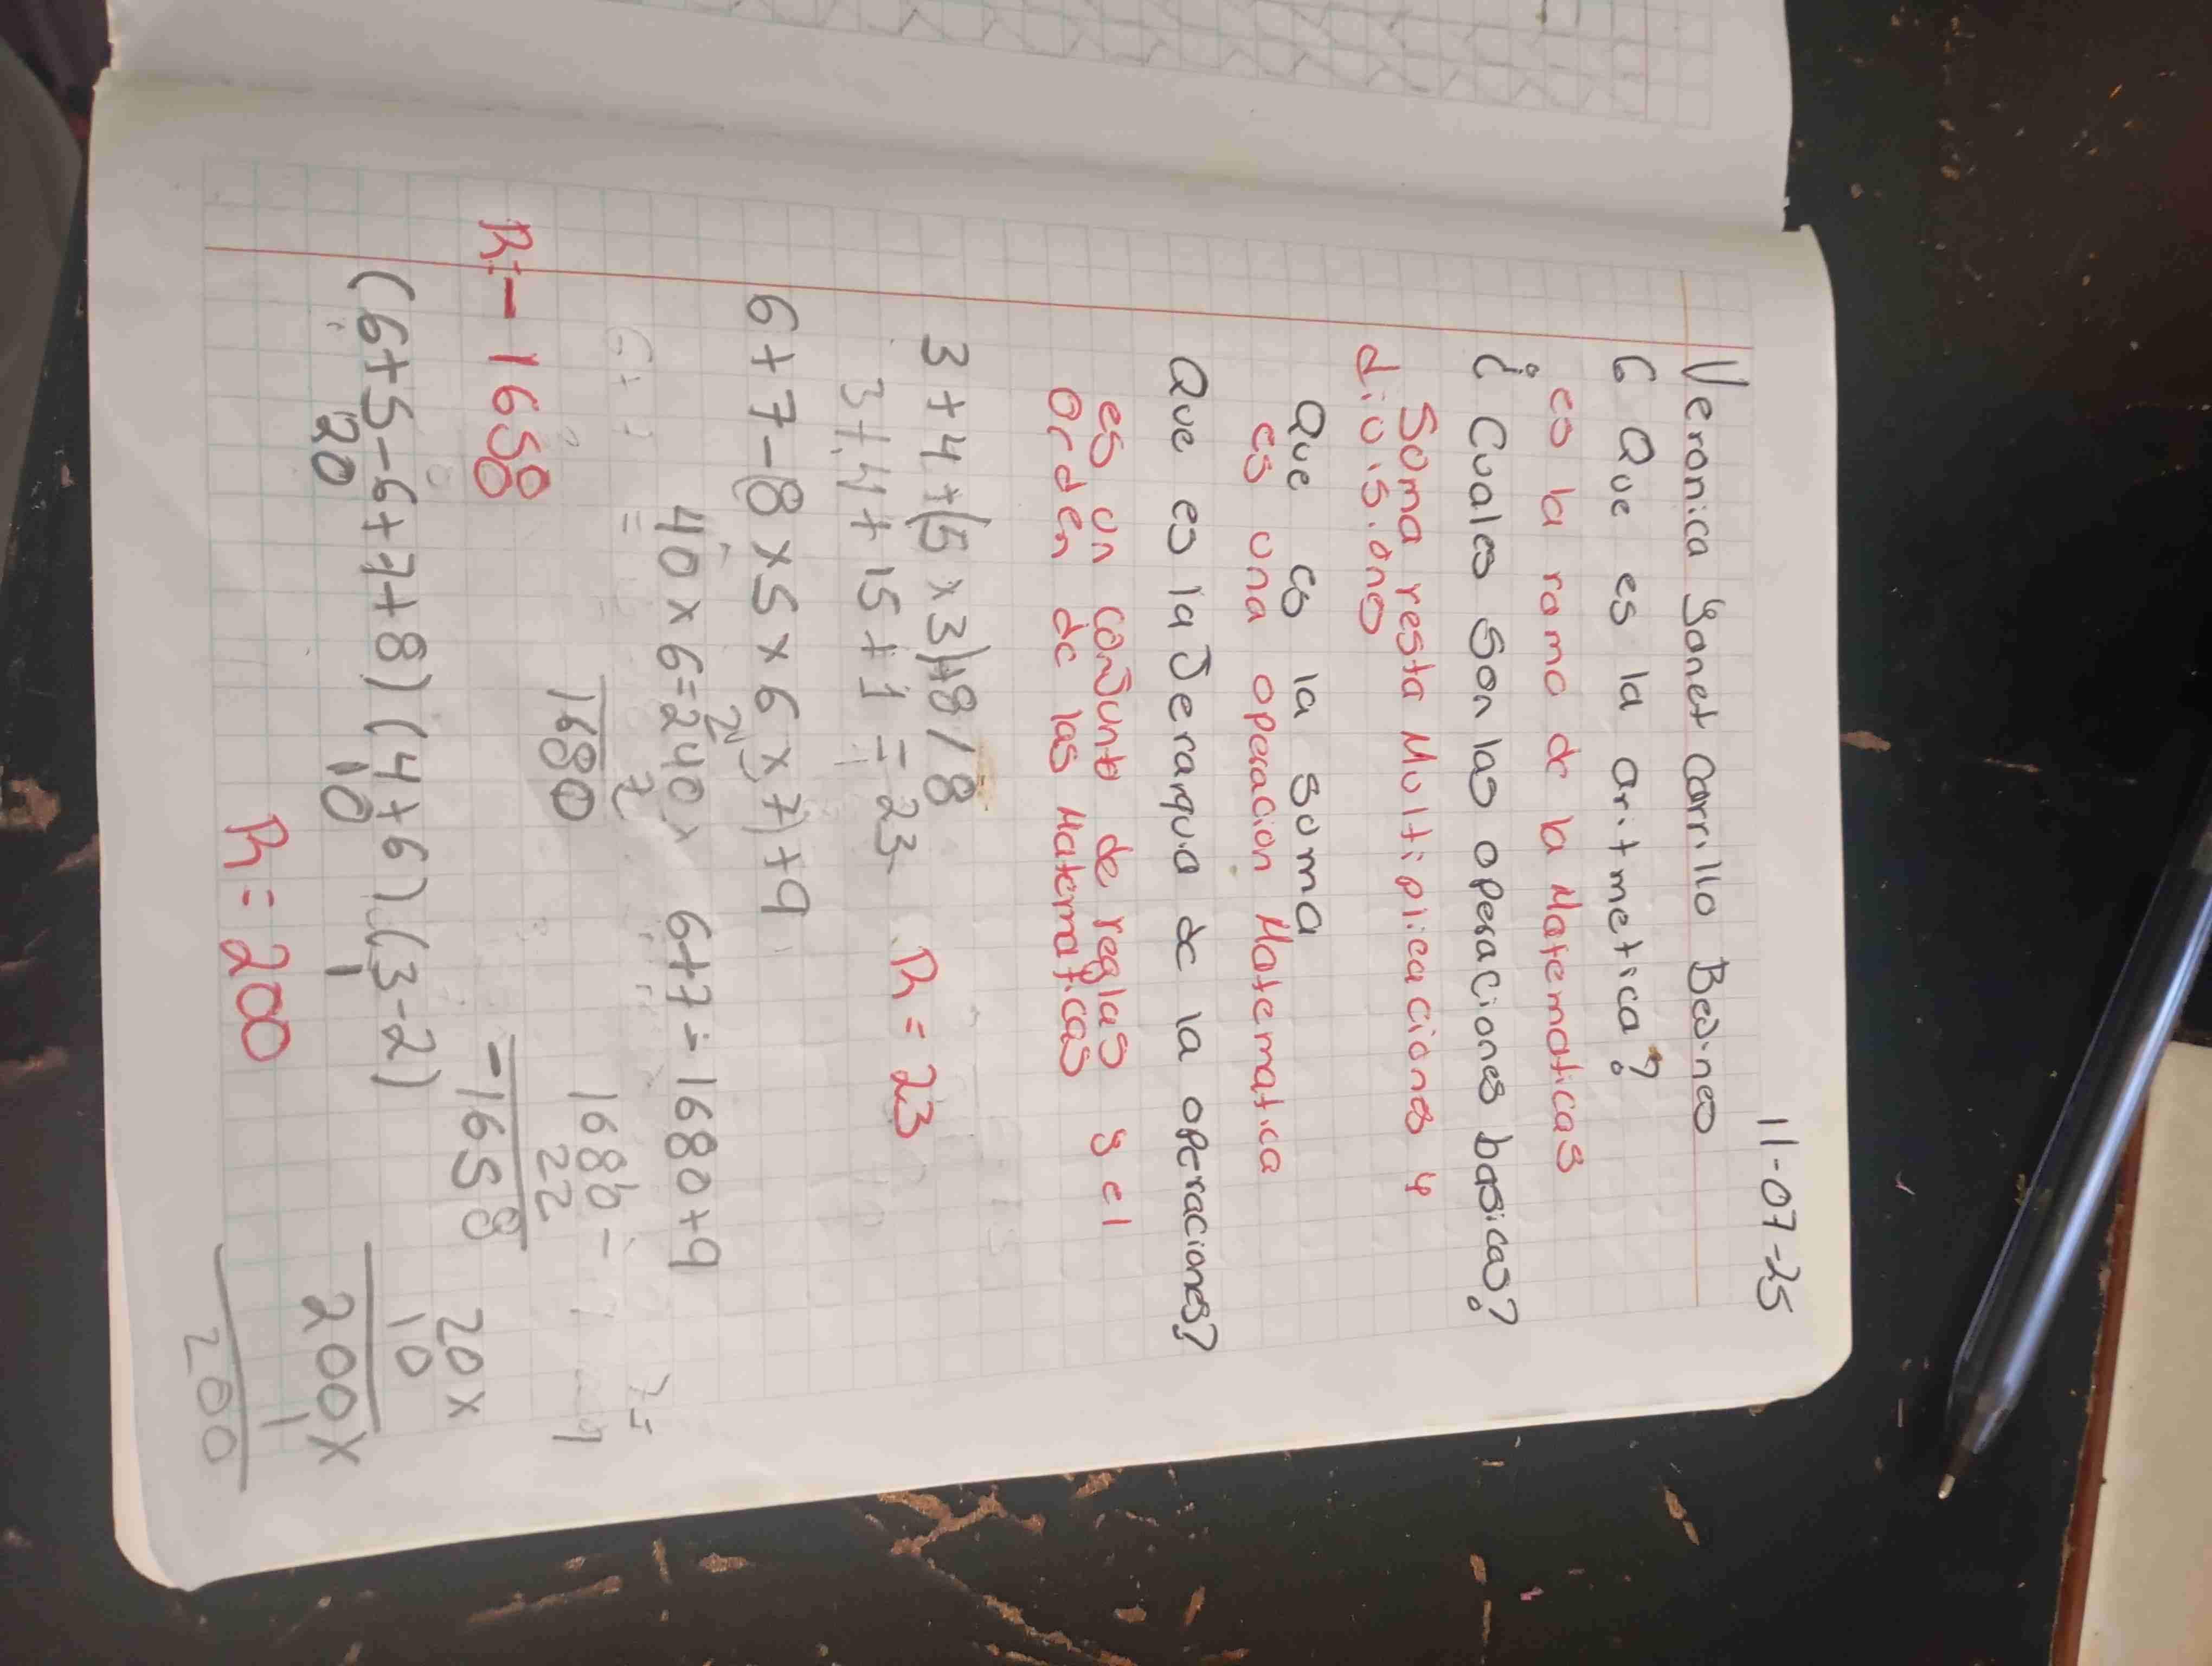 11-07-25
Veronica Yanet Carrillo
¿ Que es la aritmetica?
es la rama de la Matematicas
¿ Cuales Son las operaciones basicas?
Suma resta Multiplicaciones y
Que es la suma
es una operacion Matematica
Que es la Jerarquia de la operaciones?
es un conJunto de reglas y el
Orden de las Matematicas
3+4+(5x3)+8/8
3+4+15+1=23 R=23
6+7-(8x5x6x7)+9
40x6=240x 6+7-1680+9
7
1680
1680-
22
-1658
R=-1658
(6+5-6+7+8)(4+6)(3-2)
20 10 1
R=200
20x
10
200x
1
200